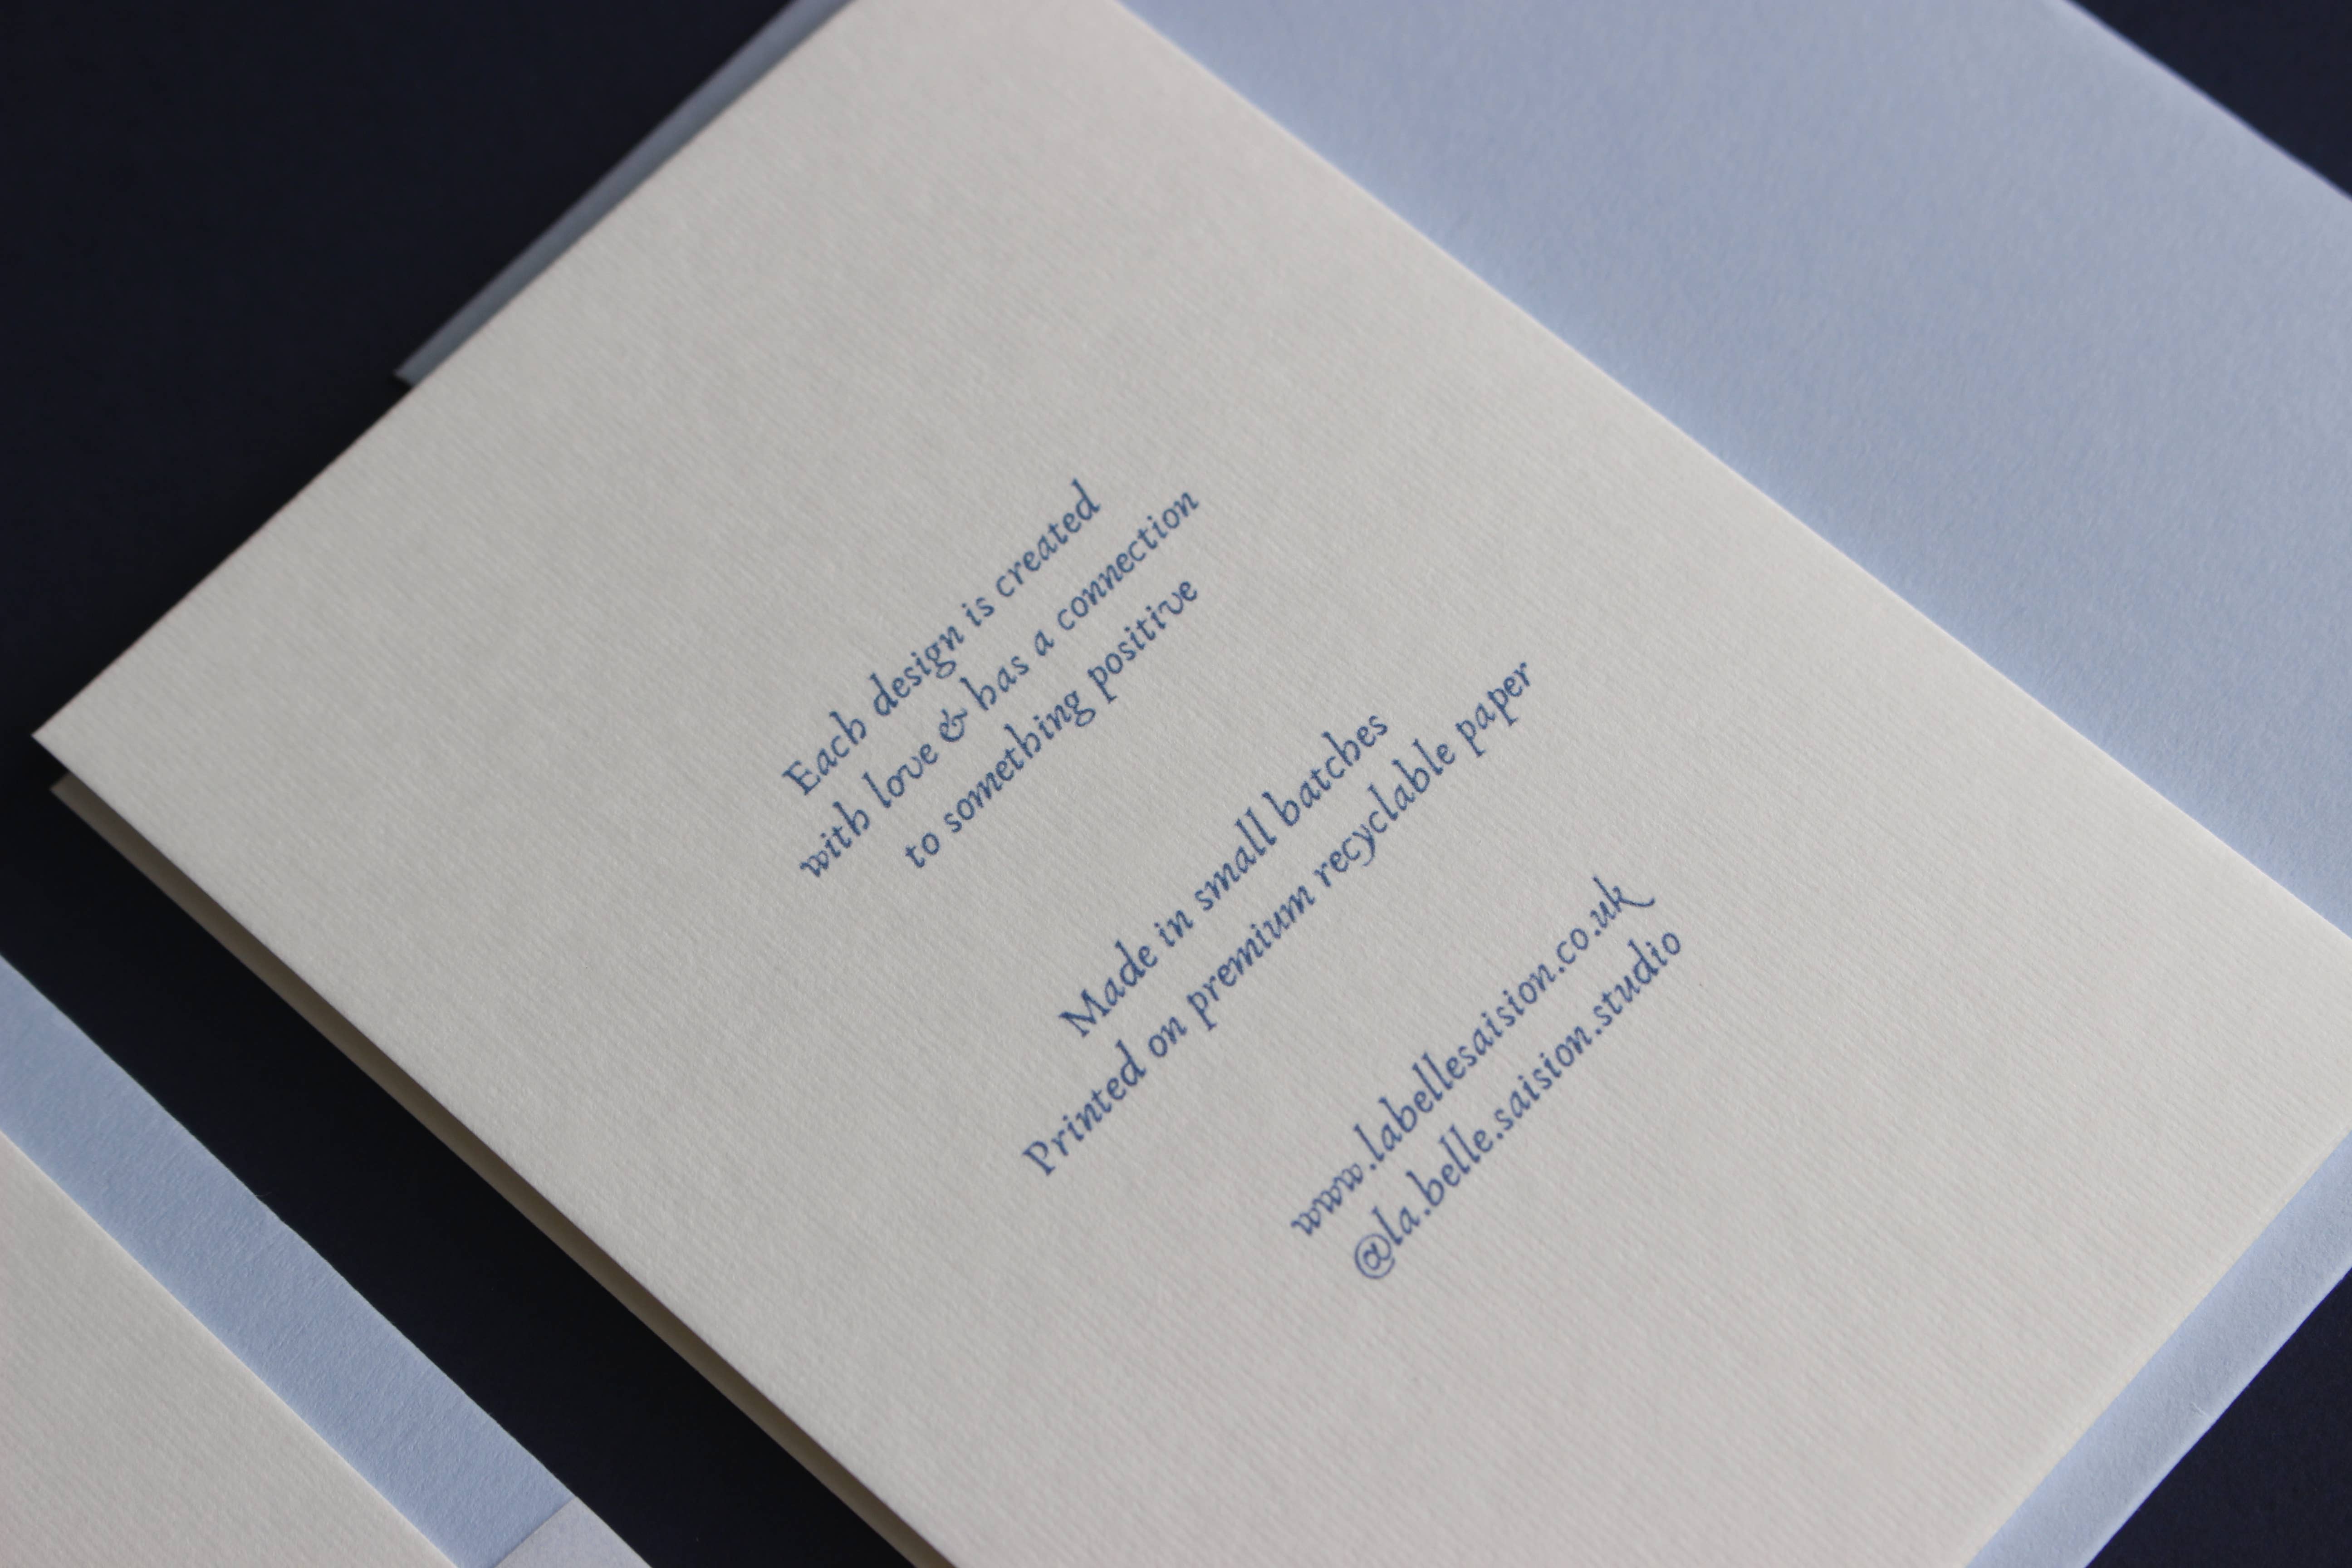 Each design is created
with love & has a connection
to something positive
Made in small batches
Printed on premium recyclable paper
www.labellesaision.co.uk
@la.belle.saision.studio